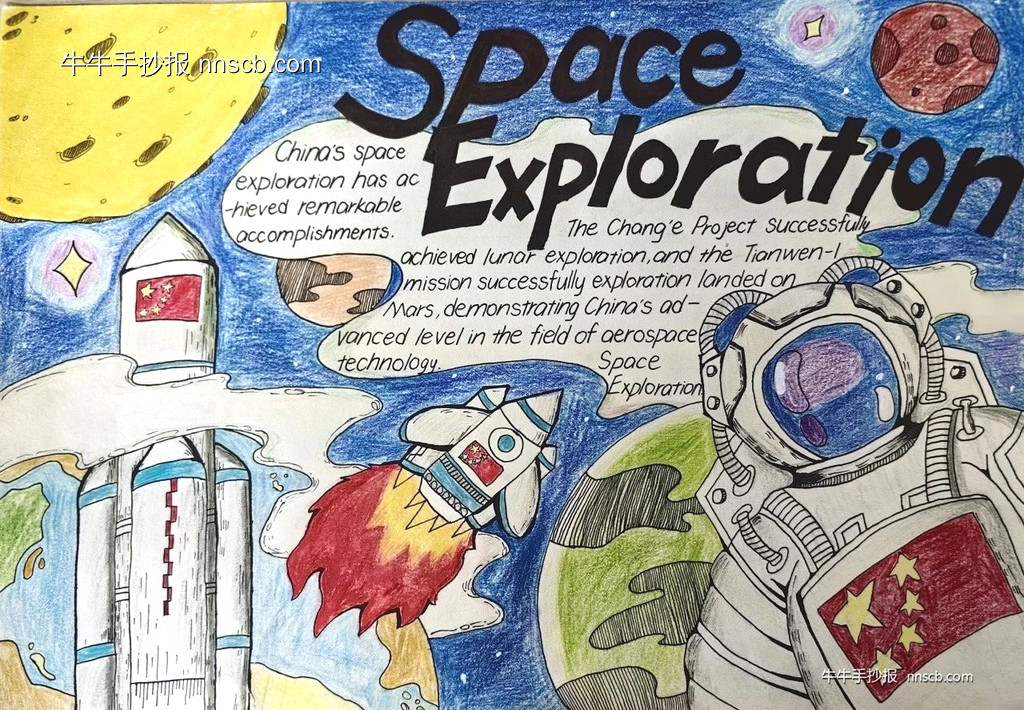 牛牛手抄报 nnscb.com
Space
Exploration
China's space
exploration has ac
-hieved remarkable
accomplishments.
The Chang'e Project successfully
achieved lunar exploration, and the Tianwen-1
mission successfully exploration landed on
Mars, demonstrating China's ad-
vanced level in the field of aerospace
technology.
Space
Exploration
牛牛手抄报 nnscb.com